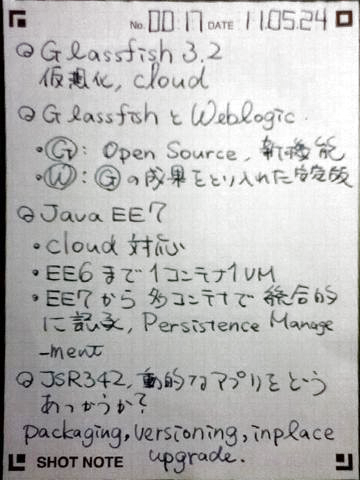 No. 00:17 DATE 11.05.24
Glassfish 3.2
仮想化, cloud
GlassfishとWeblogic.
・Ⓖ: Open Source, 新機能
・Ⓦ: Ⓖの成果をとり入れた安定版
Java EE7
・cloud 対応
・EE6まで1コンテナ1VM
・EE7から多コンテナで統合的
に記述, Persistence Manage
-ment
JSR342, 動的なアプリをどう
あつかうか?
packaging, versioning, inplace
upgrade.
SHOT NOTE